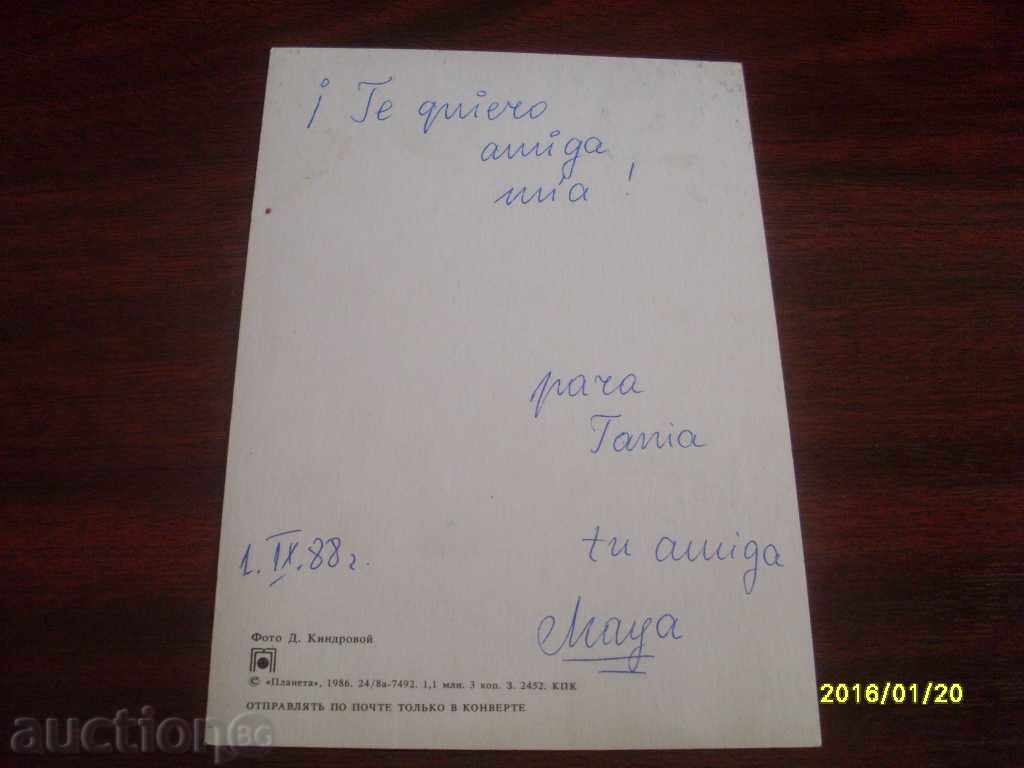 ¡ Te quiero
amiga
mia !
para
Tania
1. IX. 88 г.
tu amiga
Maya
Фото Д. Киндровой
© «Планета», 1986. 24/8а-7492. 1,1 млн. 3 коп. З. 2452. КПК
ОТПРАВЛЯТЬ ПО ПОЧТЕ ТОЛЬКО В КОНВЕРТЕ
2016/01/20
auction BG